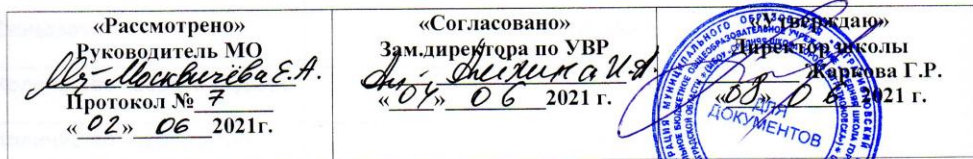 «Рассмотрено»
Руководитель МО
Москвичёва Е.А.
Протокол № 7
«02» 06 2021г.
«Согласовано»
Зам.директора по УВР
«04» 06 2021 г.
«Утверждаю»
Директор школы
Жаркова Г.Р.
«08» 06 2021 г.
ДЛЯ
ДОКУМЕНТОВ